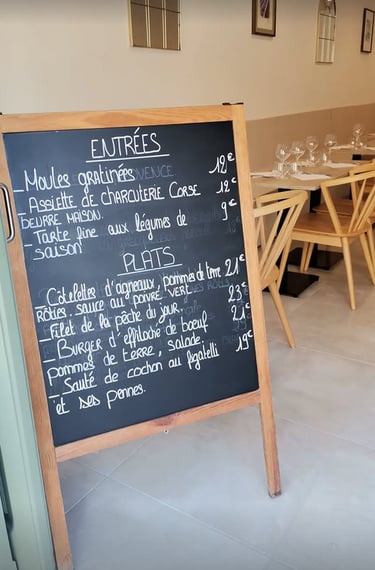 ENTRÉES
_ Moules gratinées 12€
_ Assiette de charcuterie Corse 12€
BEURRE MAISON.
_ Tarte fine aux légumes de 9€
saison
PLATS
_ Côtelettes d'agneaux, pommes de terre 21€
rôties, sauce au poivre vert
_ Filet de la pêche du jour. 23€
_ Burger d'effiloché de boeuf 21€
pommes de terre, salade
_ Sauté de cochon au figatelli 19€
et ses pennes.